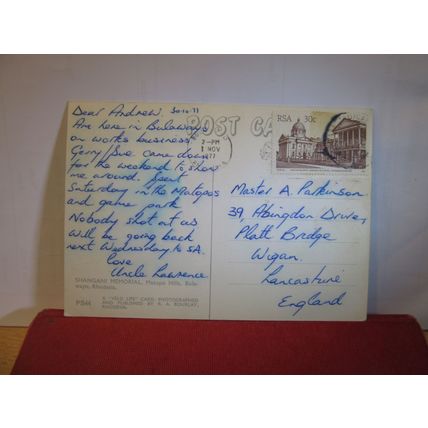 POST CA
Dear Andrew. 30-10-77
Are here in Bulawayo
on works business
Gerry/Sue came down
for the weekend to show
me around. Spent
Saturday in the Matopos
and game park
Nobody shot at us
Will be going back
next Wednesday to SA.
Love
Uncle Lawrence
SHANGANI MEMORIAL, Matopo Hills, Bula-
wayo, Rhodesia.
P244
A "VELD LIFE" CARD: PHOTOGRAPHED
AND PUBLISHED BY R. A. BOURLAY,
RHODESIA.
2-PM
1 NOV
1977
RSA 30c
Master A. Parkinson
39, Abingdon Drive,
Platt Bridge
Wigan.
Lancashire
England